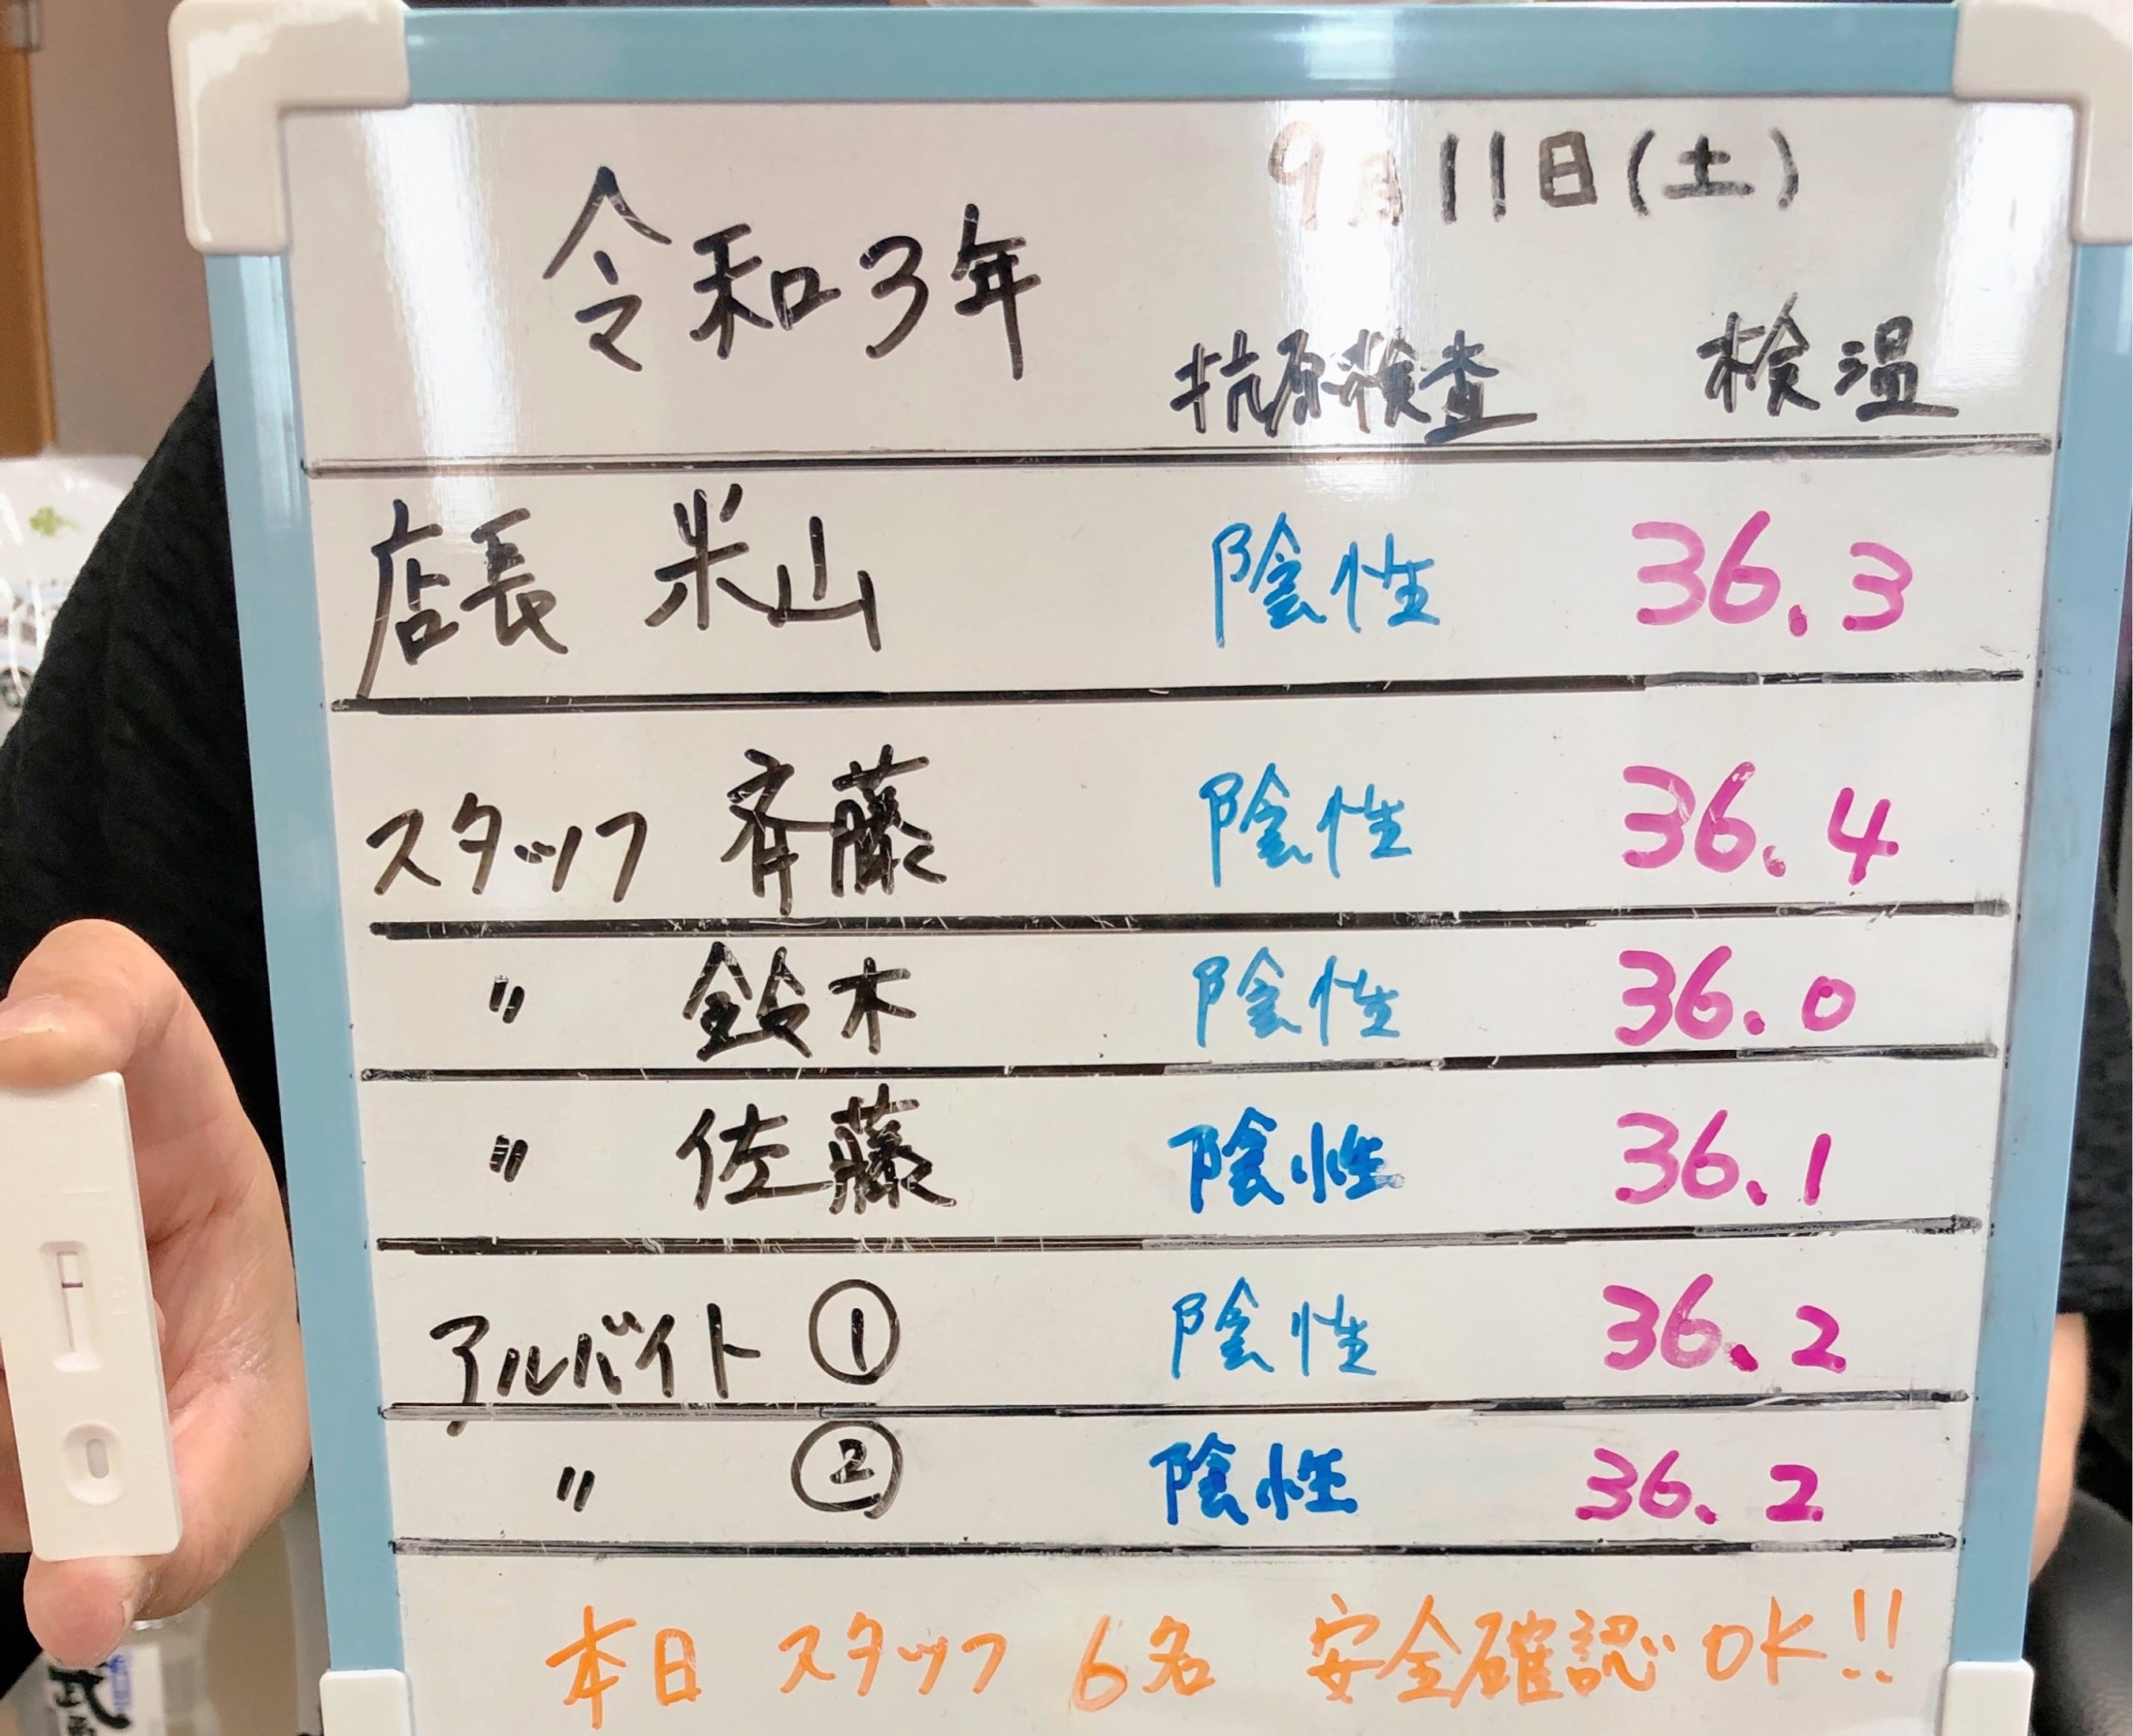 9月11日(土)
令和3年
抗原検査 検温
店長 米山 陰性 36.3
スタッフ 斉藤 陰性 36.4
〃 鈴木 陰性 36.0
〃 佐藤 陰性 36.1
アルバイト ① 陰性 36.2
〃 ② 陰性 36.2
本日 スタッフ 6名 安全確認 OK!!
武